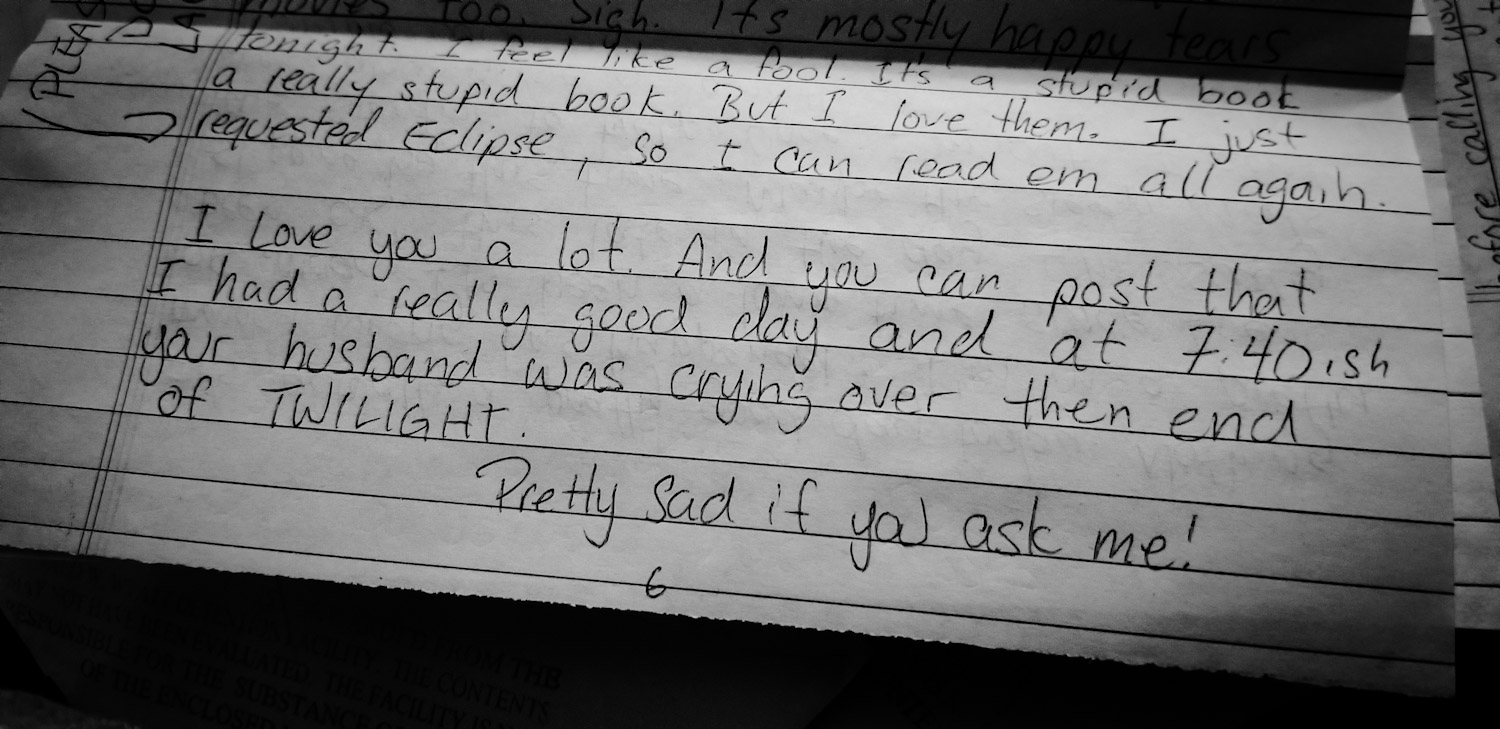 movies too. Sigh. It's mostly happy tears
tonight. I feel like a fool. It's a stupid book
a really stupid book. But I love them. I just
requested Eclipse, so I can read em all again.
I Love you a lot. And you can post that
I had a really good day and at 7:40ish
your husband was crying over then end
of TWILIGHT.
Pretty sad if you ask me!
6
before calling you
FROM THE
EVALUATED. THE FACILITY IS
THE CONTENTS
RESPONSIBLE FOR THE SUBSTANCE
OF THE ENCLOSED